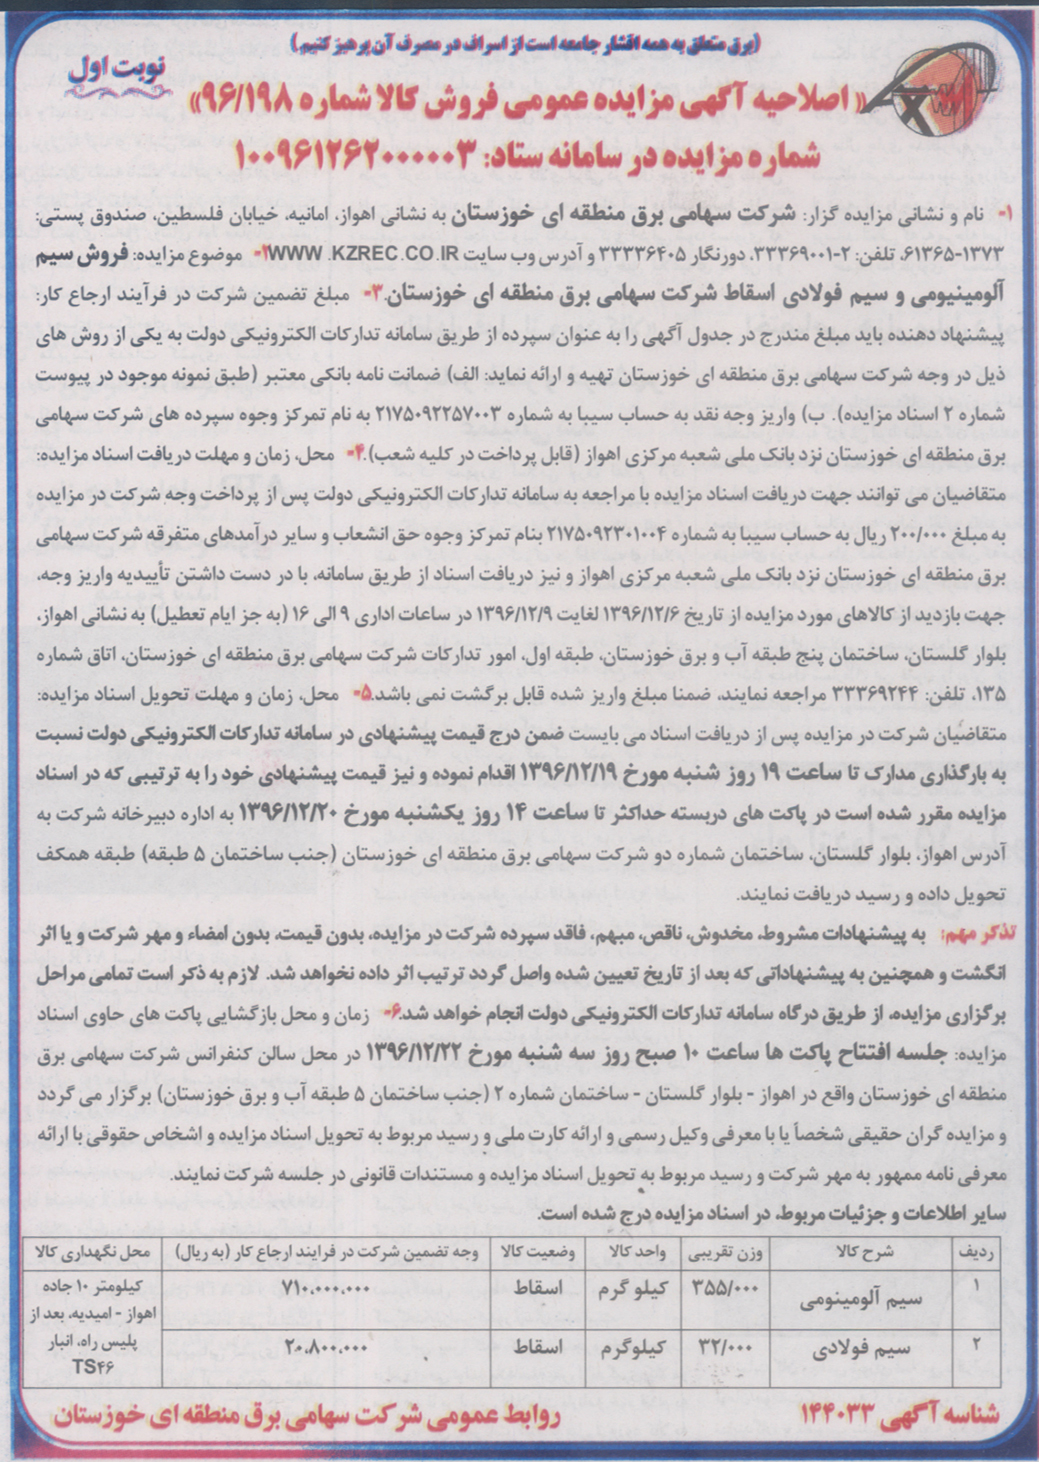 (برق متعلق به همه اقشار جامعه است از اسراف در مصرف آن پرهیز کنیم)
نوبت اول
« اصلاحیه آگهی مزایده عمومی فروش کالا شماره ۹۶/۱۹۸»
شماره مزایده در سامانه ستاد: ۱۰۰۹۶۱۲۶۲۰۰۰۰۰۳
۱- نام و نشانی مزایده گزار: شرکت سهامی برق منطقه ای خوزستان به نشانی اهواز، امانیه، خیابان فلسطین، صندوق پستی:
۶۱۳۶۵-۱۳۷۳، تلفن: ۲-۳۳۳۶۹۰۰۱، دورنگار ۳۳۳۳۶۴۰۵ و آدرس وب سایت WWW .KZREC.CO.IR ۲- موضوع مزایده: فروش سیم
آلومینیومی و سیم فولادی اسقاط شرکت سهامی برق منطقه ای خوزستان. ۳- مبلغ تضمین شرکت در فرآیند ارجاع کار:
پیشنهاد دهنده باید مبلغ مندرج در جدول آگهی را به عنوان سپرده از طریق سامانه تدارکات الکترونیکی دولت به یکی از روش های
ذیل در وجه شرکت سهامی برق منطقه ای خوزستان تهیه و ارائه نماید: الف) ضمانت نامه بانکی معتبر (طبق نمونه موجود در پیوست
شماره ۲ اسناد مزایده). ب) واریز وجه نقد به حساب سیبا به شماره ۲۱۷۵۰۹۲۲۵۷۰۰۳ به نام تمرکز وجوه سپرده های شرکت سهامی
برق منطقه ای خوزستان نزد بانک ملی شعبه مرکزی اهواز (قابل پرداخت در کلیه شعب). ۴- محل، زمان و مهلت دریافت اسناد مزایده:
متقاضیان می توانند جهت دریافت اسناد مزایده با مراجعه به سامانه تدارکات الکترونیکی دولت پس از پرداخت وجه شرکت در مزایده
به مبلغ ۲۰۰/۰۰۰ ریال به حساب سیبا به شماره ۲۱۷۵۰۹۲۳۰۱۰۰۴ بنام تمرکز وجوه حق انشعاب و سایر درآمدهای متفرقه شرکت سهامی
برق منطقه ای خوزستان نزد بانک ملی شعبه مرکزی اهواز و نیز دریافت اسناد از طریق سامانه، با در دست داشتن تأییدیه واریز وجه،
جهت بازدید از کالاهای مورد مزایده از تاریخ ۱۳۹۶/۱۲/۶ لغایت ۱۳۹۶/۱۲/۹ در ساعات اداری ۹ الی ۱۶ (به جز ایام تعطیل) به نشانی اهواز،
بلوار گلستان، ساختمان پنج طبقه آب و برق خوزستان، طبقه اول، امور تدارکات شرکت سهامی برق منطقه ای خوزستان، اتاق شماره
۱۳۵، تلفن: ۳۳۳۶۹۲۴۴ مراجعه نمایند، ضمنا مبلغ واریز شده قابل برگشت نمی باشد. ۵- محل، زمان و مهلت تحویل اسناد مزایده:
متقاضیان شرکت در مزایده پس از دریافت اسناد می بایست ضمن درج قیمت پیشنهادی در سامانه تدارکات الکترونیکی دولت نسبت
به بارگذاری مدارک تا ساعت ۱۹ روز شنبه مورخ ۱۳۹۶/۱۲/۱۹ اقدام نموده و نیز قیمت پیشنهادی خود را به ترتیبی که در اسناد
مزایده مقرر شده است در پاکت های دربسته حداکثر تا ساعت ۱۴ روز یکشنبه مورخ ۱۳۹۶/۱۲/۲۰ به اداره دبیرخانه شرکت به
آدرس اهواز، بلوار گلستان، ساختمان شماره دو شرکت سهامی برق منطقه ای خوزستان (جنب ساختمان ۵ طبقه) طبقه همکف
تحویل داده و رسید دریافت نمایند.
تذکر مهم: به پیشنهادات مشروط، مخدوش، ناقص، مبهم، فاقد سپرده شرکت در مزایده، بدون قیمت، بدون امضاء و مهر شرکت و یا اثر
انگشت و همچنین به پیشنهاداتی که بعد از تاریخ تعیین شده واصل گردد ترتیب اثر داده نخواهد شد. لازم به ذکر است تمامی مراحل
برگزاری مزایده، از طریق درگاه سامانه تدارکات الکترونیکی دولت انجام خواهد شد. ۶- زمان و محل بازگشایی پاکت های حاوی اسناد
مزایده: جلسه افتتاح پاکت ها ساعت ۱۰ صبح روز سه شنبه مورخ ۱۳۹۶/۱۲/۲۲ در محل سالن کنفرانس شرکت سهامی برق
منطقه ای خوزستان واقع در اهواز - بلوار گلستان - ساختمان شماره ۲ (جنب ساختمان ۵ طبقه آب و برق خوزستان) برگزار می گردد
و مزایده گران حقیقی شخصاً یا با معرفی وکیل رسمی و ارائه کارت ملی و رسید مربوط به تحویل اسناد مزایده و اشخاص حقوقی با ارائه
معرفی نامه ممهور به مهر شرکت و رسید مربوط به تحویل اسناد مزایده و مستندات قانونی در جلسه شرکت نمایند.
سایر اطلاعات و جزئیات مربوط، در اسناد مزایده درج شده است.
ردیف شرح کالا وزن تقریبی واحد کالا وضعیت کالا وجه تضمین شرکت در فرایند ارجاع کار (به ریال) محل نگهداری کالا
۱ سیم آلومینومی ۳۵۵/۰۰۰ کیلو گرم اسقاط ۷۱۰.۰۰۰.۰۰۰ کیلومتر ۱۰ جاده
اهواز - امیدیه، بعد از
۲ سیم فولادی ۳۲/۰۰۰ کیلوگرم اسقاط ۲۰.۸۰۰.۰۰۰ پلیس راه، انبار
TS۴۶
شناسه آگهی ۱۴۴۰۳۳ روابط عمومی شرکت سهامی برق منطقه ای خوزستان